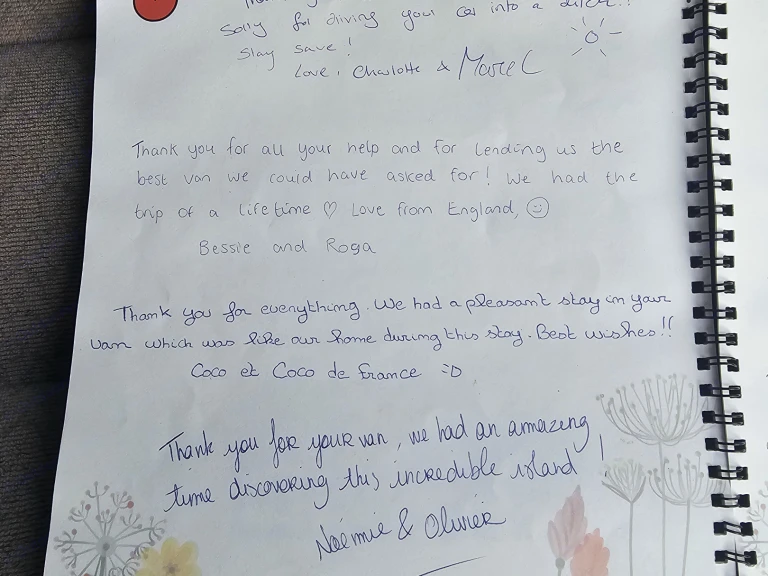 Sorry for driving your car into a ditch!!
Stay save!
Love, Charlotte & Marcel
Thank you for all your help and for lending us the
best van we could have asked for! We had the
trip of a lifetime ♡ Love from England, ☺
Bessie and Roga
Thank you for everything. We had a pleasant stay in your
van which was like our home during this stay. Best wishes!!
Coco et Coco de France =D
Thank you for your van, we had an amazing
time discovering this incredible island!
Noémie & Olivier